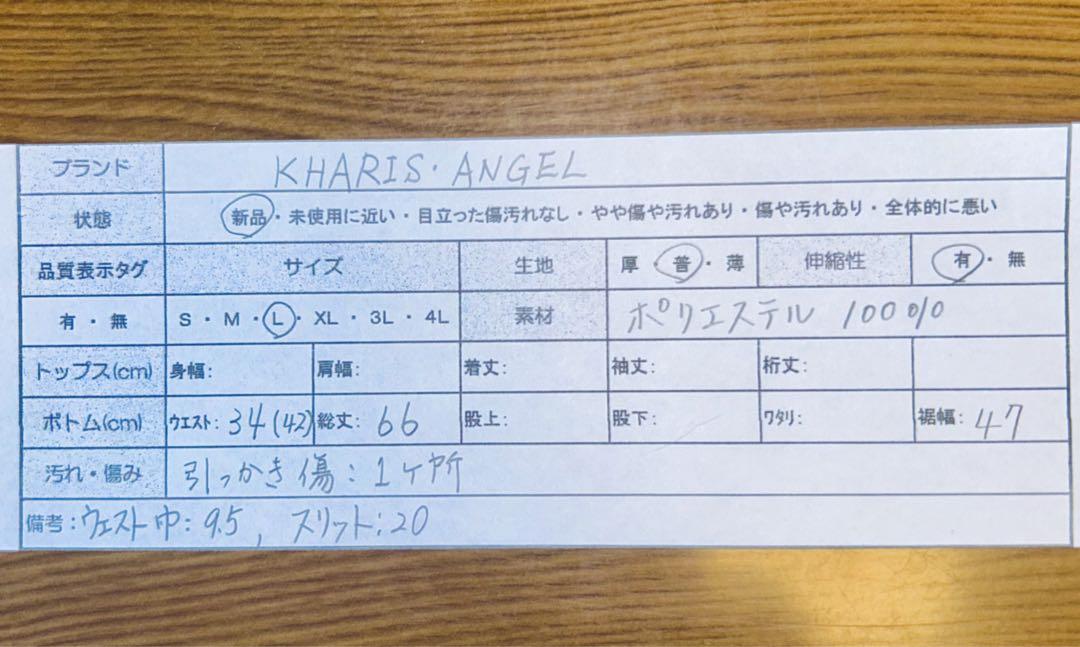 ブランド KHARIS・ANGEL
状態 新品・未使用に近い・目立った傷汚れなし・やや傷や汚れあり・傷や汚れあり・全体的に悪い
品質表示タグ サイズ 生地 厚・普・薄 伸縮性 有・無
有・無 S・M・L・XL・3L・4L 素材 ポリエステル 100%
トップス(cm) 身幅: 肩幅: 着丈: 袖丈: 裄丈:
ボトム(cm) ウエスト: 34(42) 総丈: 66 股上: 股下: ワタリ: 裾幅: 47
汚れ・傷み 引っかき傷:1ヶ所
備考:ウェスト巾:9.5, スリット:20